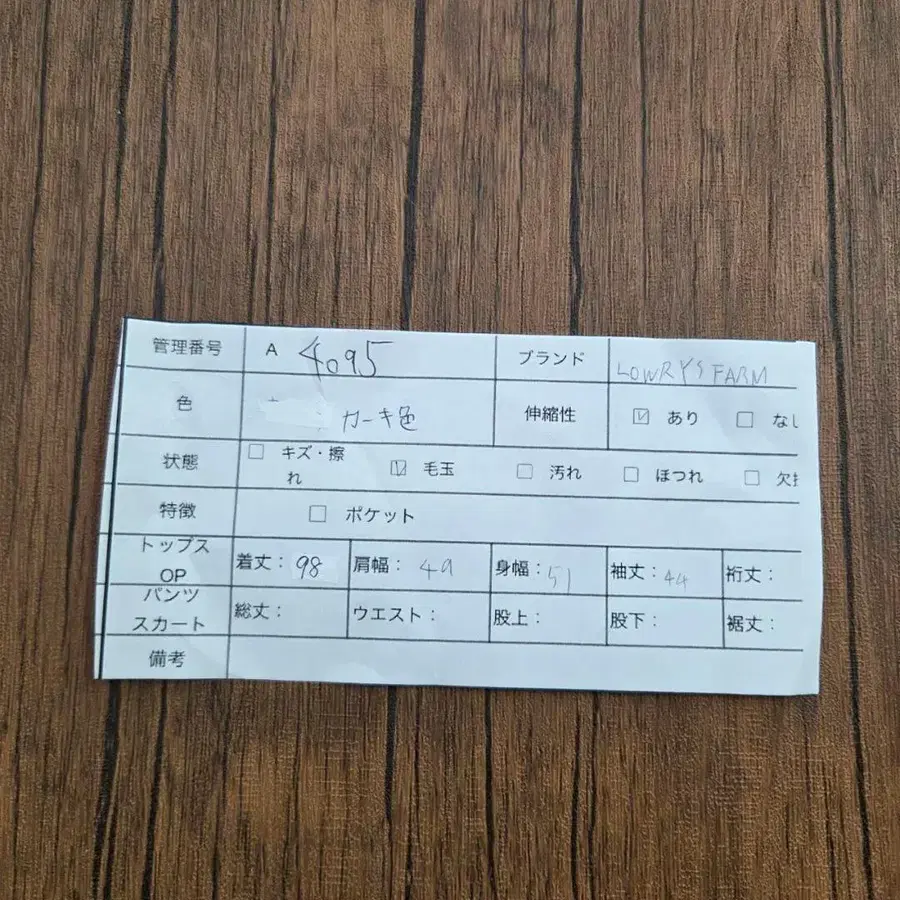 管理番号 A 4095 ブランド LOWRYS FARM
色 カーキ色 伸縮性 ☑ あり ☐ なし
状態 ☐ キズ・擦れ ☑ 毛玉 ☐ 汚れ ☐ ほつれ ☐
特徴 ☐ ポケット
トップス OP 着丈: 98 肩幅: 49 身幅: 51 袖丈: 44 裄丈:
パンツ スカート 総丈: ウエスト: 股上: 股下: 裾丈:
備考